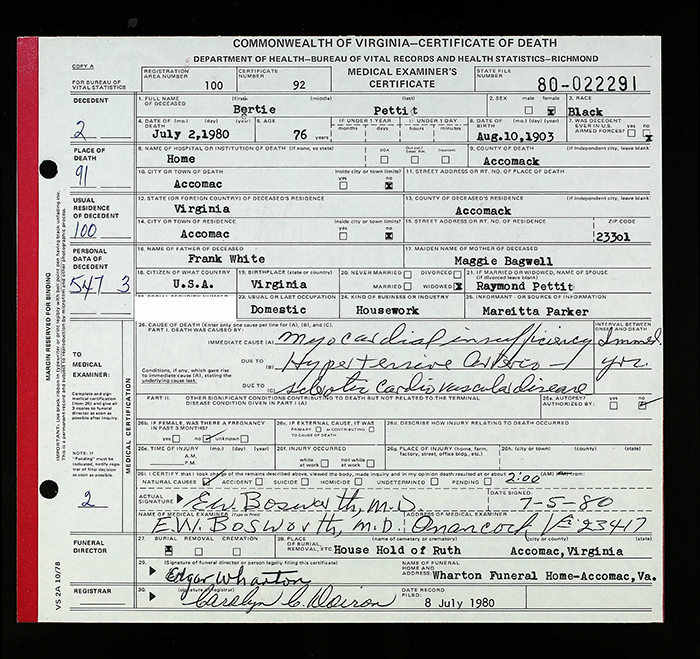 COMMONWEALTH OF VIRGINIA—CERTIFICATE OF DEATH
DEPARTMENT OF HEALTH—BUREAU OF VITAL RECORDS AND HEALTH STATISTICS—RICHMOND
COPY A
FOR BUREAU OF VITAL STATISTICS
REGISTRATION AREA NUMBER 100 CERTIFICATE NUMBER 92 MEDICAL EXAMINER'S CERTIFICATE STATE FILE NUMBER 80-022291
DECEDENT
1. FULL NAME OF DECEASED (first) (middle) (last) 2. SEX male female 3. RACE
Bertie Pettit x Black
2
4. DATE OF DEATH (mo.) (day) (year) 5. AGE IF UNDER 1 YEAR IF UNDER 1 DAY 6. DATE OF BIRTH (mo.) (day) (year) 7. WAS DECEDENT EVER IN U.S. ARMED FORCES? yes no
July 2,1980 76 years months days hours minutes Aug.10,1903 x
PLACE OF DEATH
91
8. NAME OF HOSPITAL OR INSTITUTION OF DEATH (if none, so state) DOA Inpatient 9. COUNTY OF DEATH (if independent city, leave blank)
Home Accomack
10. CITY OR TOWN OF DEATH inside city or town limits? yes no 11. STREET ADDRESS OR RT. NO. OF PLACE OF DEATH
Accomac x
USUAL RESIDENCE OF DECEDENT
100
12. STATE (OR FOREIGN COUNTRY) OF DECEASED'S RESIDENCE 13. COUNTY OF DECEASED'S RESIDENCE (if independent city, leave blank)
Virginia Accomack
14. CITY OR TOWN OF RESIDENCE inside city or town limits? yes no 15. STREET ADDRESS OR RT. NO. OF RESIDENCE ZIP CODE
Accomac x 23301
PERSONAL DATA OF DECEDENT
547 3
16. NAME OF FATHER OF DECEASED 17. MAIDEN NAME OF MOTHER OF DECEASED
Frank White Maggie Bagwell
18. CITIZEN OF WHAT COUNTRY 19. BIRTHPLACE (state or country) 20. NEVER MARRIED DIVORCED 21. IF MARRIED OR WIDOWED, NAME OF SPOUSE (if divorced leave blank)
U.S.A. Virginia MARRIED WIDOWED x Raymond Pettit
23. USUAL OR LAST OCCUPATION 24. KIND OF BUSINESS OR INDUSTRY 25. INFORMANT - OR SOURCE OF INFORMATION
Domestic Housework Mareitta Parker
MARGIN RESERVED FOR BINDING
TO MEDICAL EXAMINER:
Complete and sign medical certification (item 26) and give 3 copies to funeral director as soon as possible after inquiry
MEDICAL CERTIFICATION
26. CAUSE OF DEATH (Enter only one cause per line for (A), (B), and (C).) INTERVAL BETWEEN ONSET AND DEATH
PART I. DEATH WAS CAUSED BY:
IMMEDIATE CAUSE (A) Myocardial insufficiency Immed.
DUE TO (B) Hypertensive Arterio- 1 yr.
Conditions, if any, which gave rise to immediate cause (A), stating the underlying cause last.
DUE TO (C) sclerotic cardiovascular disease
PART II. OTHER SIGNIFICANT CONDITIONS CONTRIBUTING TO DEATH BUT NOT RELATED TO THE TERMINAL DISEASE CONDITION GIVEN IN PART I (A) 26a. AUTOPSY? AUTHORIZED BY: yes no
26b. IF FEMALE, WAS THERE A PREGNANCY IN PAST 3 MONTHS? yes no unknown
26c. IF EXTERNAL CAUSE, IT WAS PRIMARY or CONTRIBUTING TO CAUSE OF DEATH
26d. DESCRIBE HOW INJURY RELATING TO DEATH OCCURRED
NOTE: If "Pending" must be indicated, notify registrar of final decision as soon as possible
26e. TIME OF INJURY (mo.) (day) (year) A.M. P.M. 26f. INJURY OCCURRED while at work not while at work 26g. PLACE OF INJURY (home, farm, factory, street, office bldg., etc.) 26h. (city or town) (county) (state)
26i. I CERTIFY that I took charge of the remains described above, viewed the body, made inquiry and in my opinion death resulted at or about 2:00 (AM)
NATURAL CAUSES ACCIDENT SUICIDE HOMICIDE UNDETERMINED PENDING
2
ACTUAL SIGNATURE E.W. Bosworth, M.D. DATE SIGNED: 7-5-80
NAME OF MEDICAL EXAMINER (Type or Print) ADDRESS OF MEDICAL EXAMINER
E.W. Bosworth, M.D. Onancock Va 23417
FUNERAL DIRECTOR
27. BURIAL REMOVAL CREMATION 28. PLACE OF BURIAL, REMOVAL, ETC. (name of cemetery or crematory) (city or county) (state)
x House Hold of Ruth Accomac,Virginia
29. (Signature of funeral director or person legally filing this certificate) NAME OF FUNERAL HOME AND ADDRESS:
Edgar Wharton Wharton Funeral Home-Accomac,Va.
REGISTRAR
30. (signature of registrar) DATE RECORD FILED:
Carolyn C. Doiron 8 July 1980
VS 2A 10/78